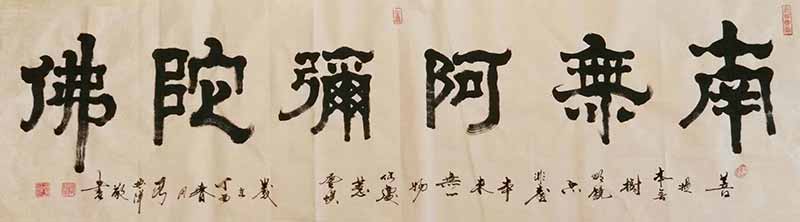 南無阿彌陀佛
菩提本無樹明鏡亦非臺本來無一物何處惹塵埃歲在丁酉春月敬書